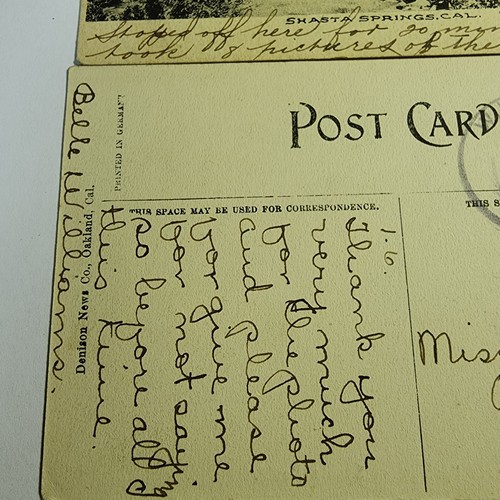 SHASTA SPRINGS, CAL.
Stoped off here for 20 min
took 8 pictures of the
POST CARD
PRINTED IN GERMANY
Denison News Co., Oakland, Cal.
THIS SPACE MAY BE USED FOR CORRESPONDENCE.
THIS S
1.6.
Thank you
very much
for the Photo
and please
forgive me
for not saying
so before all
this time.
Belle Williams.
Miss